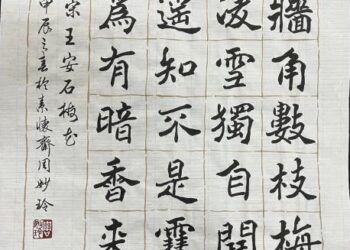 牆角數枝梅
凌雪獨自開
遥知不是
為有暗香来
宋王安石梅花
甲辰之春於素懷齋周妙玲